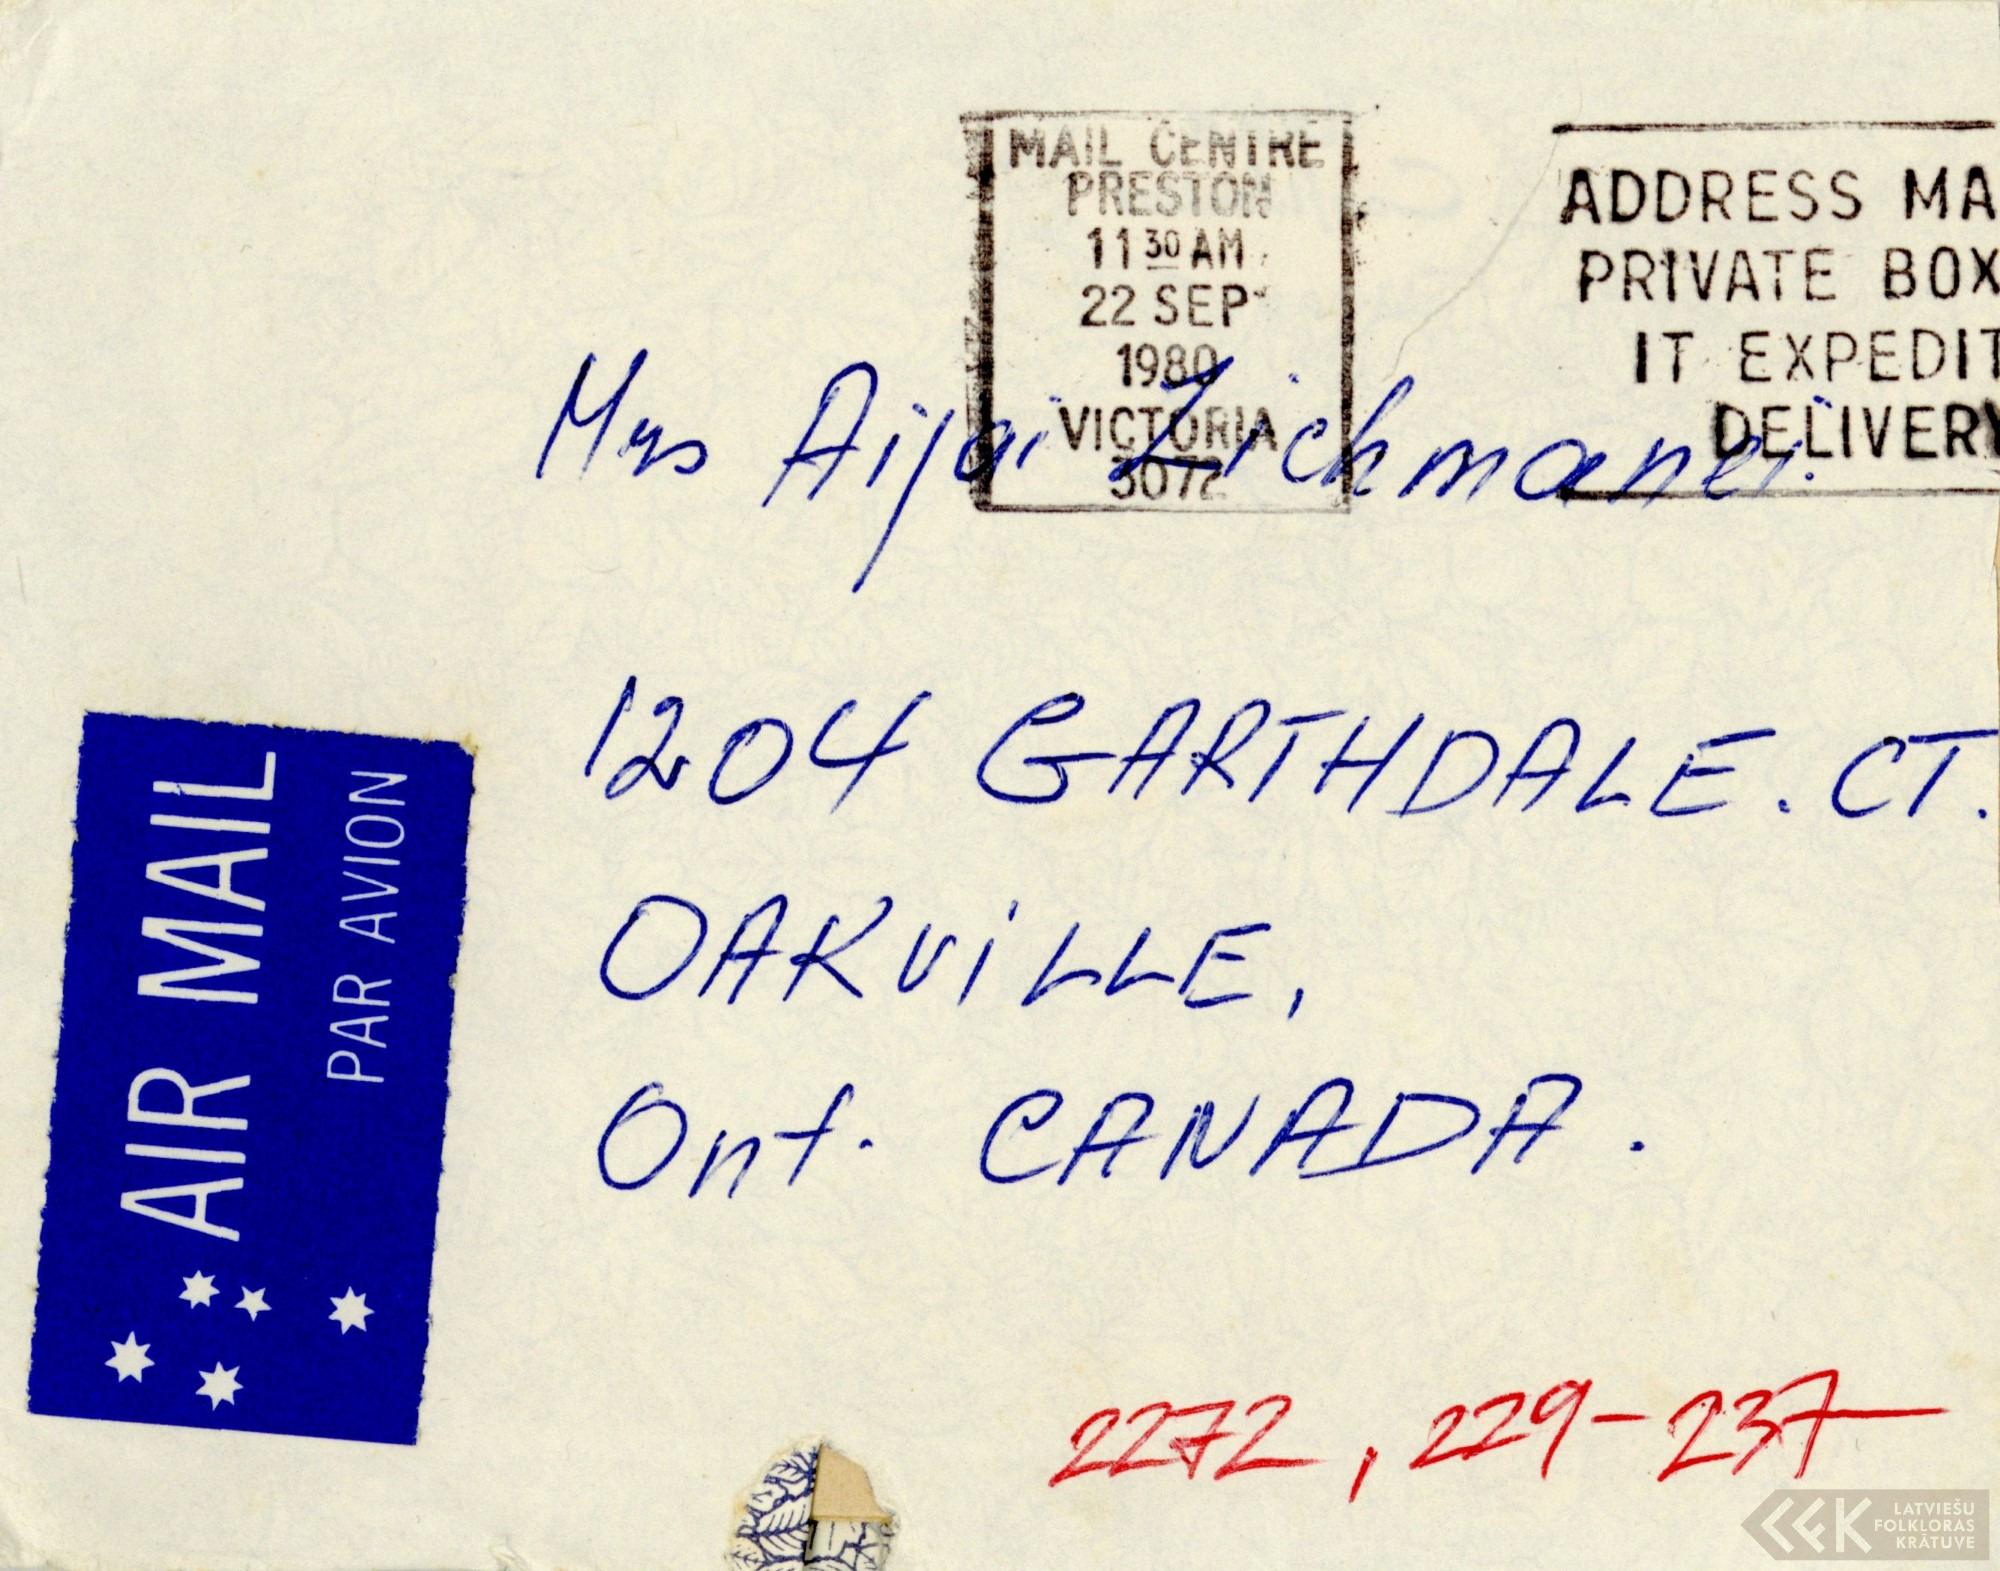 MAIL CENTRE
PRESTON
11 30 AM
22 SEP
1980
VICTORIA
3072
ADDRESS MA
PRIVATE BOX
IT EXPEDIT
DELIVERY
Mrs Aijai Zichmanei.
1204 GARTHDALE. CT.
OAKViLLE,
Ont. CANADA.
AIR MAIL
PAR AVION
2272, 229-237
LATVIEŠU
FOLKLORAS
KRĀTUVE